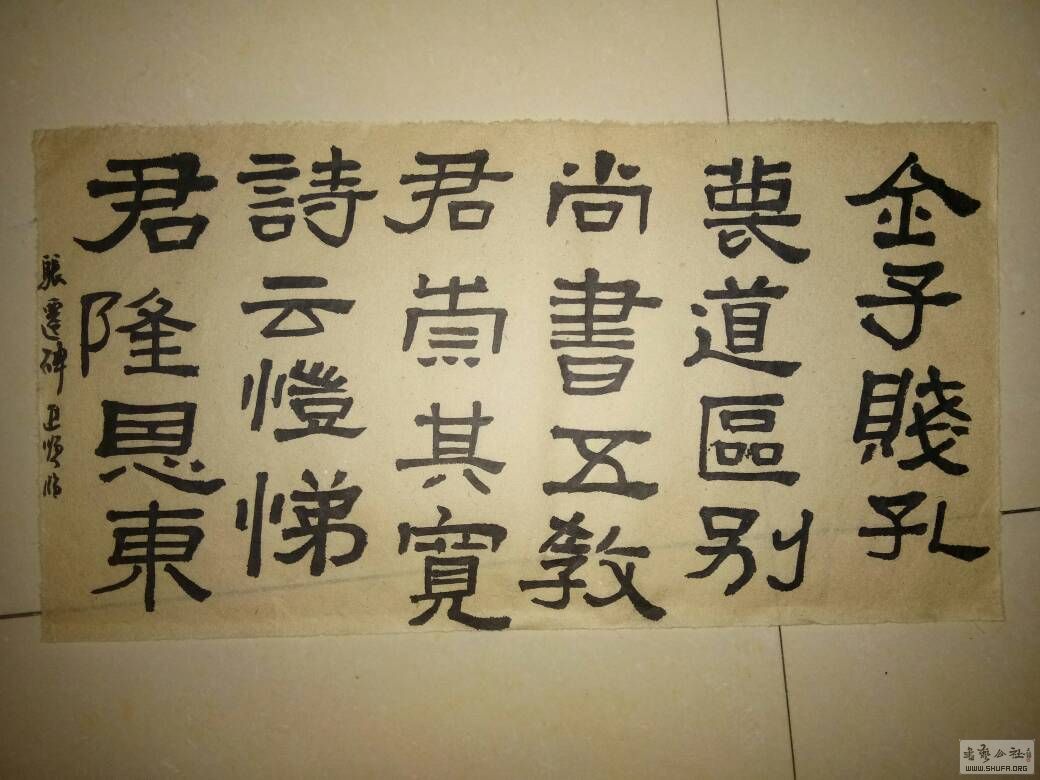 金子賤孔
蔑道區别
尚書五教
君崇其寬
詩云愷悌
君隆恩東
張遷碑
書藝公社
WWW.SHUFA.ORG